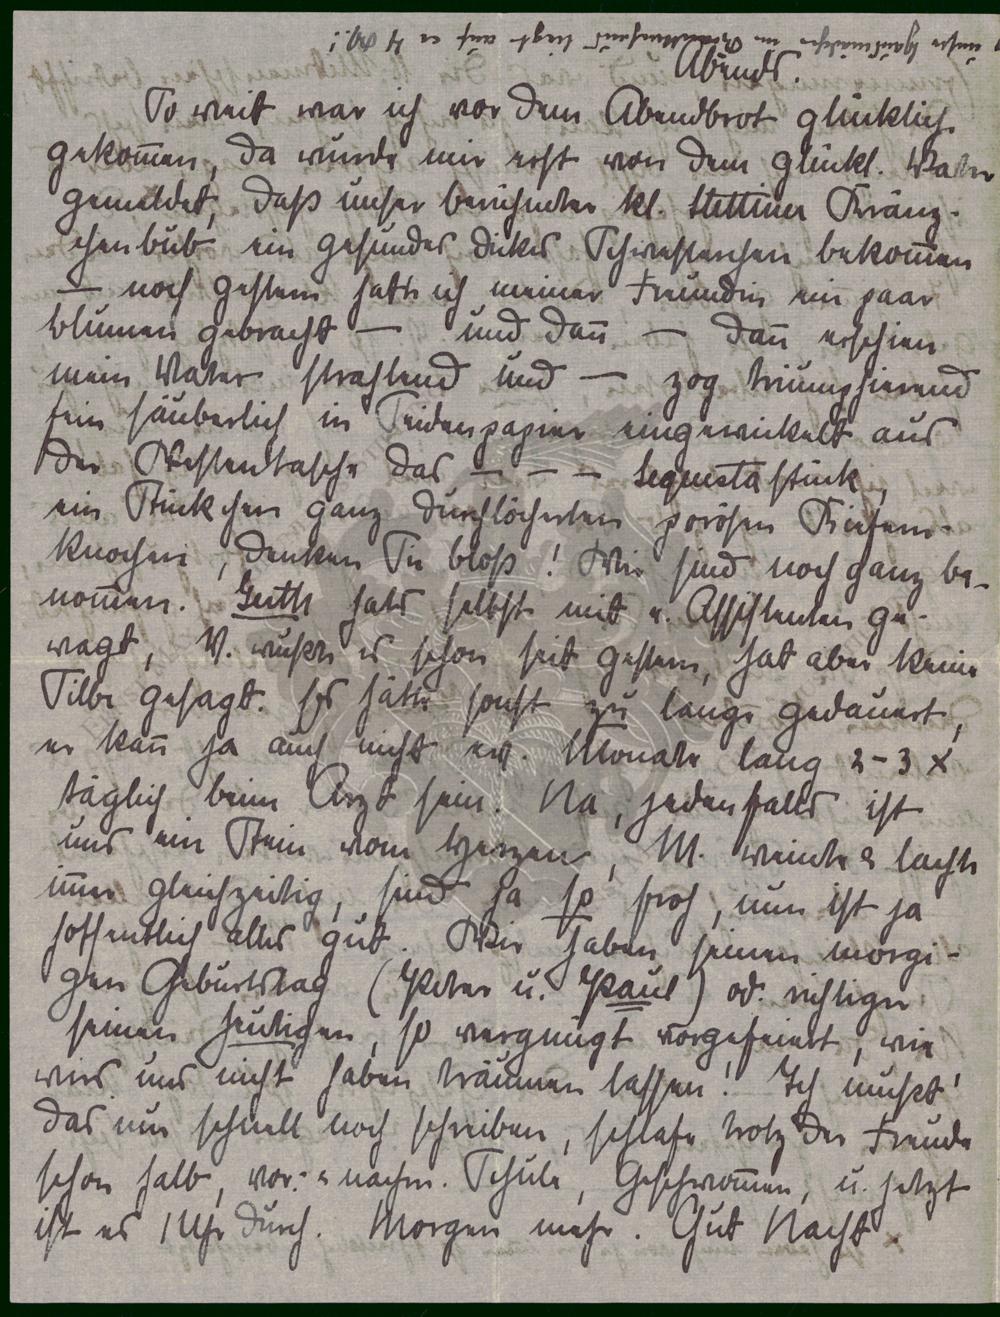 unser Hausmädchen im Krankenhaus liegt auf er 4 M.;
Abends.
So weit war ich vor dem Abendbrot glücklich
gekom̄en, da wurde mir erst von dem glückl. Vater
gemeldet, daß unser berühmter kl. Stettiner Kränz-
chenbub ein gesundes dickes Schwesterchen bekom̄en
— noch gestern hatte ich meiner Freundin ein paar
Blumen gebracht — und dan̄ — dan̄ erschien
mein Vater strahlend und — zog triumphierend
fein säuberlich in Seidenpapier eingewickelt aus
der Westentasche das — — — Sequesta stück,
ein Stückchen ganz durchlöcherten porösen Kiefern-
knochen, denken Sie bloß! Wir sind noch ganz be-
nom̄en. Guth hats selbst mit e. Assistenten ge-
wagt, V. wußte es schon seit gestern, hat aber keine
Silbe gesagt. Es hätte sonst zu lange gedauert,
er kan̄ ja auch nicht ev. Monate lang 2-3 x
täglich beim Arzt sein. Na, jedenfalls ist
uns ein Stein vom Herzen, M. weinte & lachte
im̄er gleichzeitig, sind ja so froh, nun ist ja
hoffentlich alles gut. Wir haben seinen morgi-
gen Geburtstag (Peter u. Paul) od. richtiger
seinen heutigen, so vergnügt vorgefeiert, wie
wirs uns nicht haben träumen lassen! Ich mußt'
das nur schnell noch schreiben, schlafe trotz der Freude
schon halb, vor- & nachm. Schule, Geschwom̄en, u. jetzt
ist es 1 Uhr durch. Morgen mehr. Gut Nacht